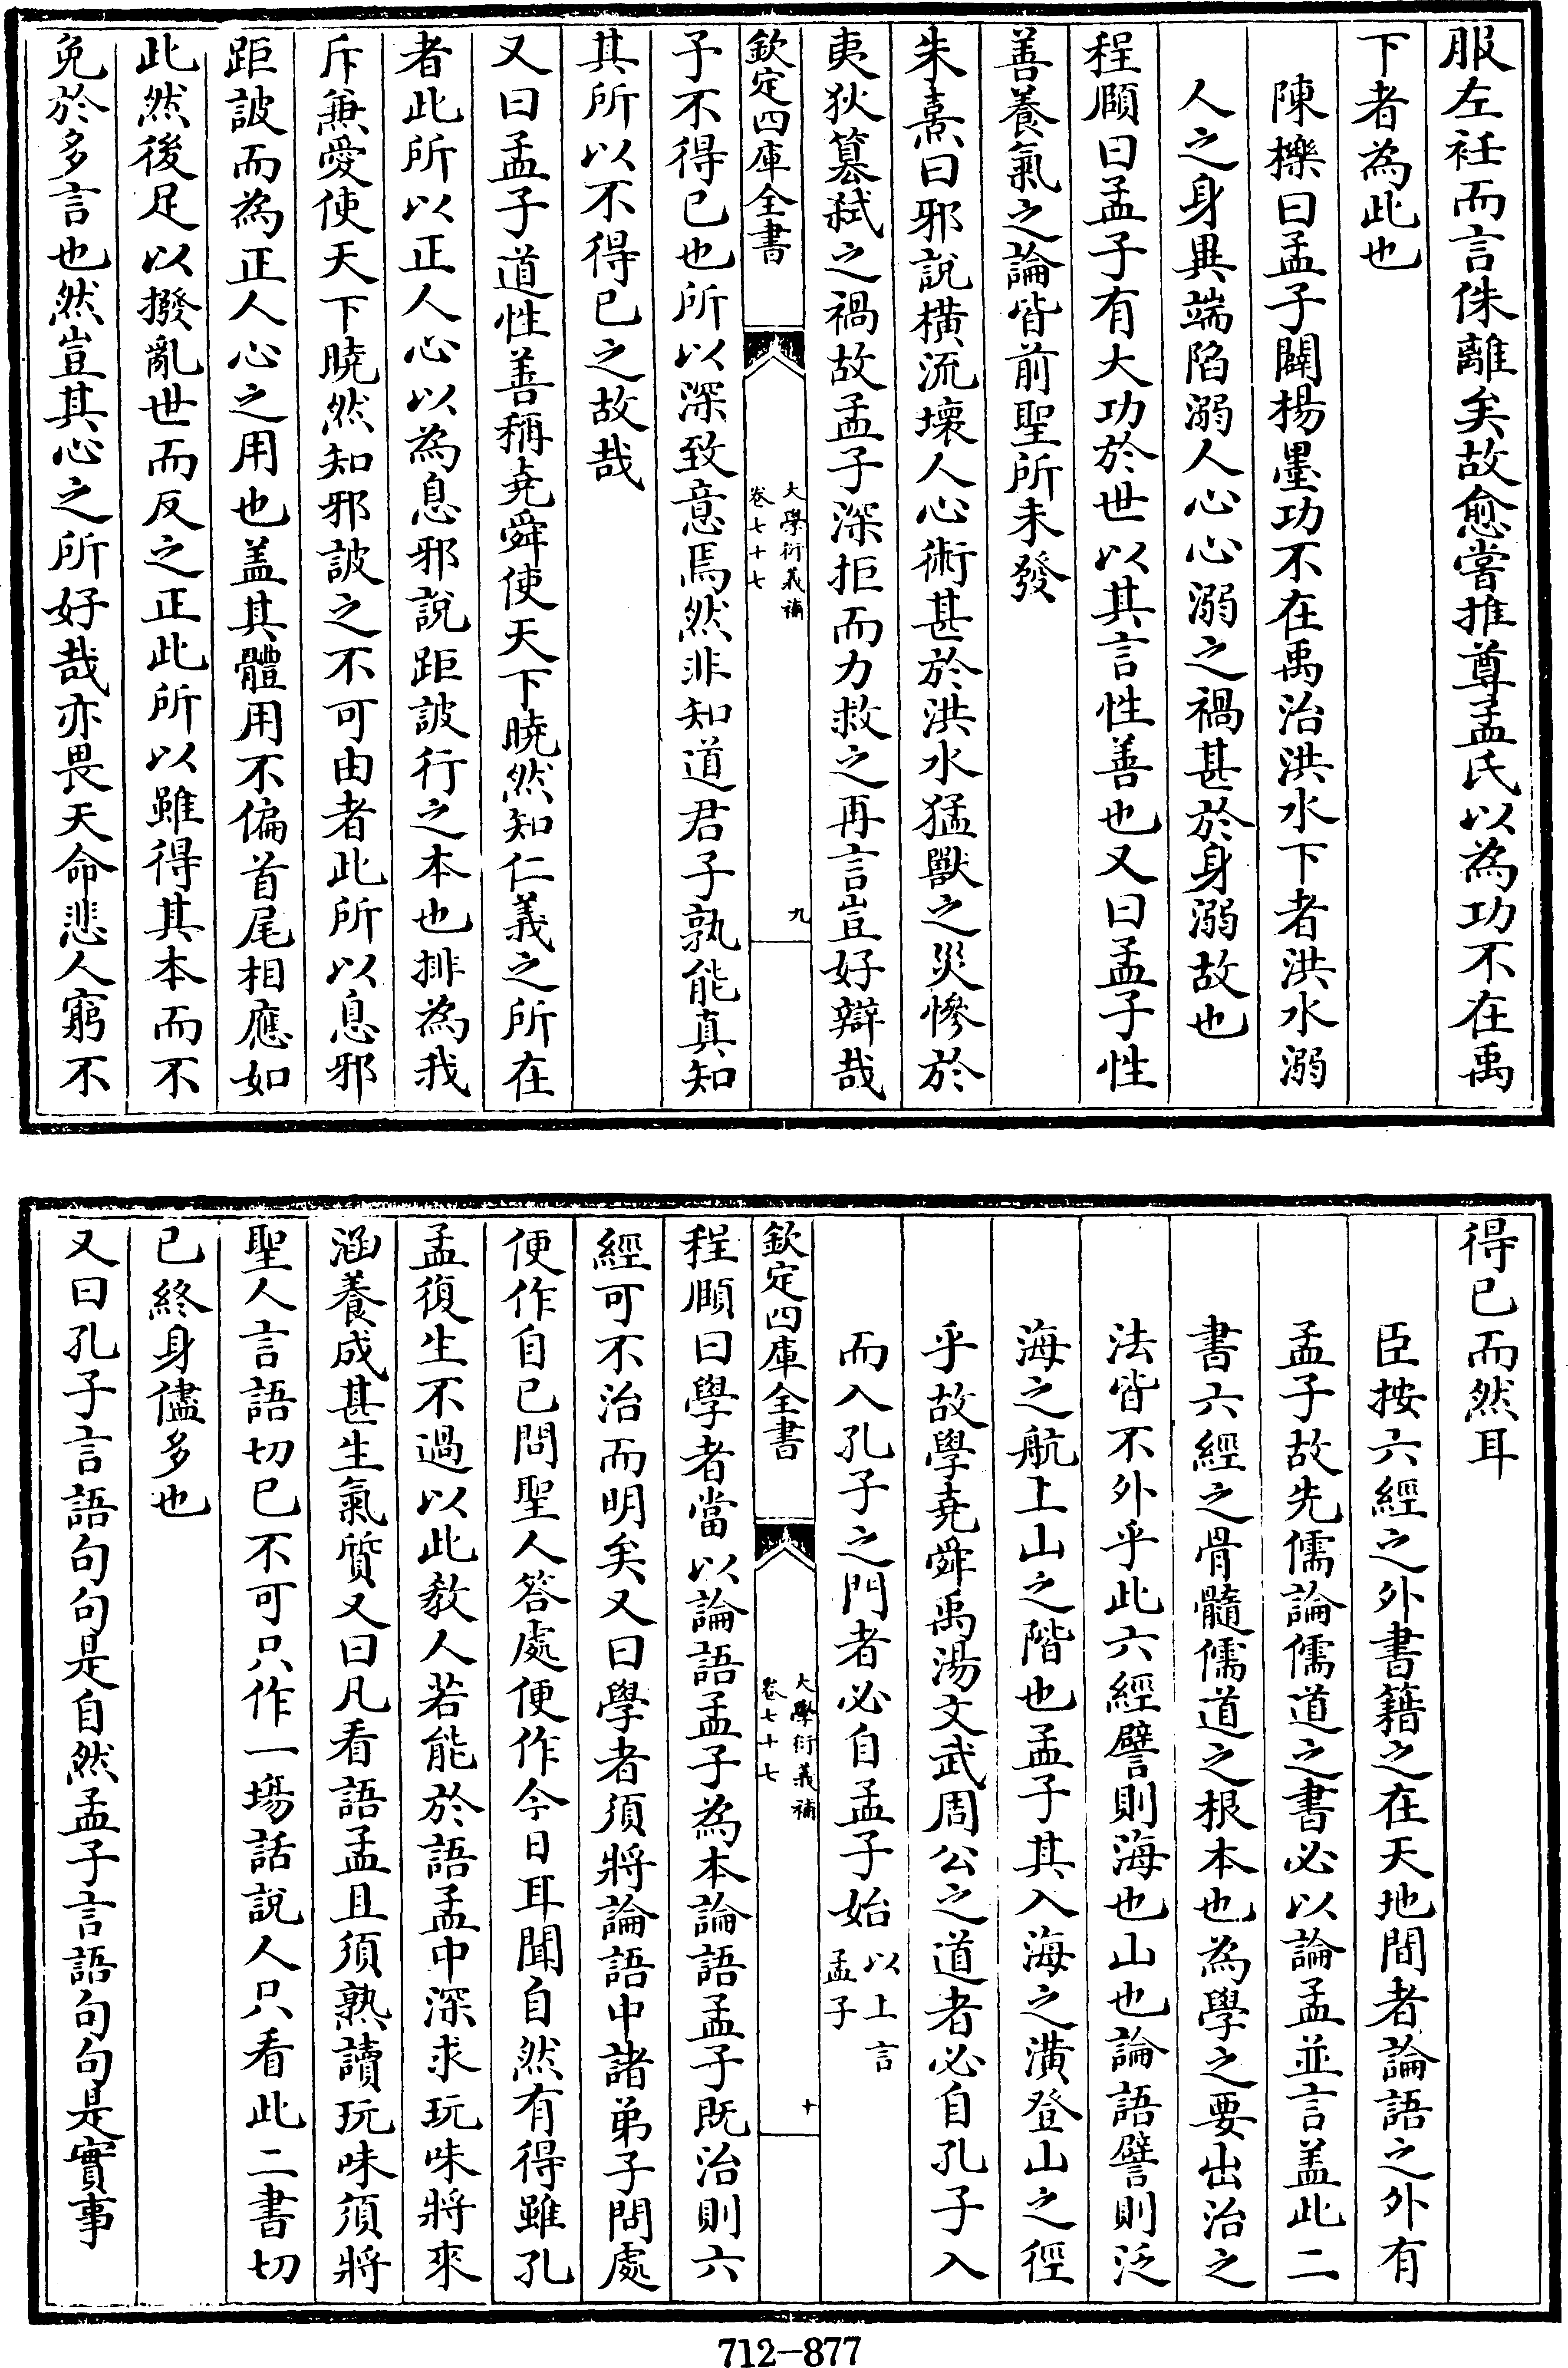 服左衽而言侏離矣故愈嘗推尊孟氏以為功不在禹
下者為此也
陳櫟曰孟子闢楊墨功不在禹治洪水下者洪水溺
人之身異端陷溺人心心溺之禍甚於身溺故也
程頤曰孟子有大功於世以其言性善也又曰孟子性
善養氣之論皆前聖所未發
朱熹曰邪說橫流壞人心術甚於洪水猛獸之災慘於
夷狄簒弑之禍故孟子深拒而力救之再言豈好辯哉
欽定四庫全書
大學衍義補
卷七十七
九
子不得已也所以深致意焉然非知道君子孰能真知
其所以不得已之故哉
又曰孟子道性善稱堯舜使天下曉然知仁義之所在
者此所以正人心以為息邪說距詖行之本也排為我
斥兼愛使天下曉然知邪詖之不可由者此所以息邪
距詖而為正人心之用也盖其體用不偏首尾相應如
此然後足以撥亂世而反之正此所以雖得其本而不
免於多言也然豈其心之所好哉亦畏天命悲人窮不
得已而然耳
臣按六經之外書籍之在天地間者論語之外有
孟子故先儒論儒道之書必以論孟並言盖此二
書六經之骨髓儒道之根本也為學之要出治之
法皆不外乎此六經譬則海也山也論語譬則泛
海之航上山之階也孟子其入海之潢登山之徑
乎故學堯舜禹湯文武周公之道者必自孔子入
而入孔子之門者必自孟子始以上言孟子
欽定四庫全書
大學衍義補
卷七十七
十
程頤曰學者當以論語孟子為本論語孟子既治則六
經可不治而明矣又曰學者須將論語中諸弟子問處
便作自已問聖人答處便作今日耳聞自然有得雖孔
孟復生不過以此教人若能於語孟中深求玩味將來
涵養成甚生氣質又曰凡看語孟且須熟讀玩味須將
聖人言語切已不可只作一場話說人只看此二書切
已終身儘多也
又曰孔子言語句句是自然孟子言語句句是實事
712-877